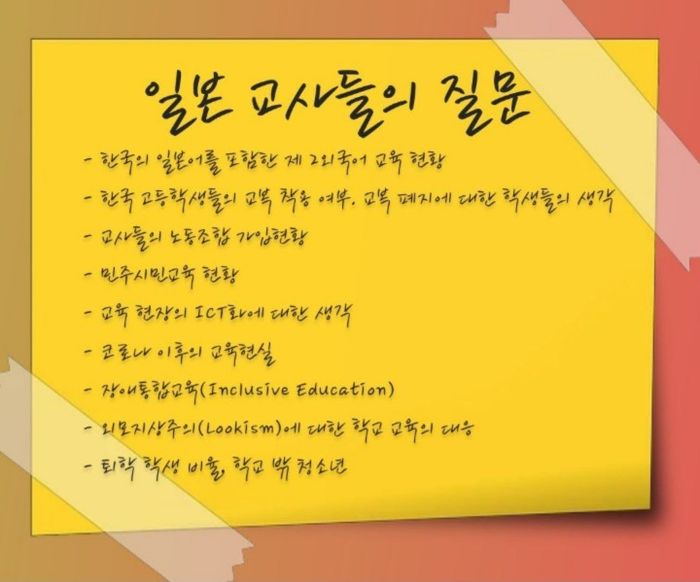 일본 교사들의 질문
- 한국의 일본어를 포함한 제 2외국어 교육 현황
- 한국 고등학생들의 교복 착용 여부. 교복 폐지에 대한 학생들의 생각
- 교사들의 노동조합 가입현황
- 민주시민교육 현황
- 교육 현장의 ICT화에 대한 생각
- 코로나 이후의 교육현실
- 장애통합교육(Inclusive Education)
- 외모지상주의(Lookism)에 대한 학교 교육의 대응
- 퇴학 학생 비율, 학교 밖 청소년